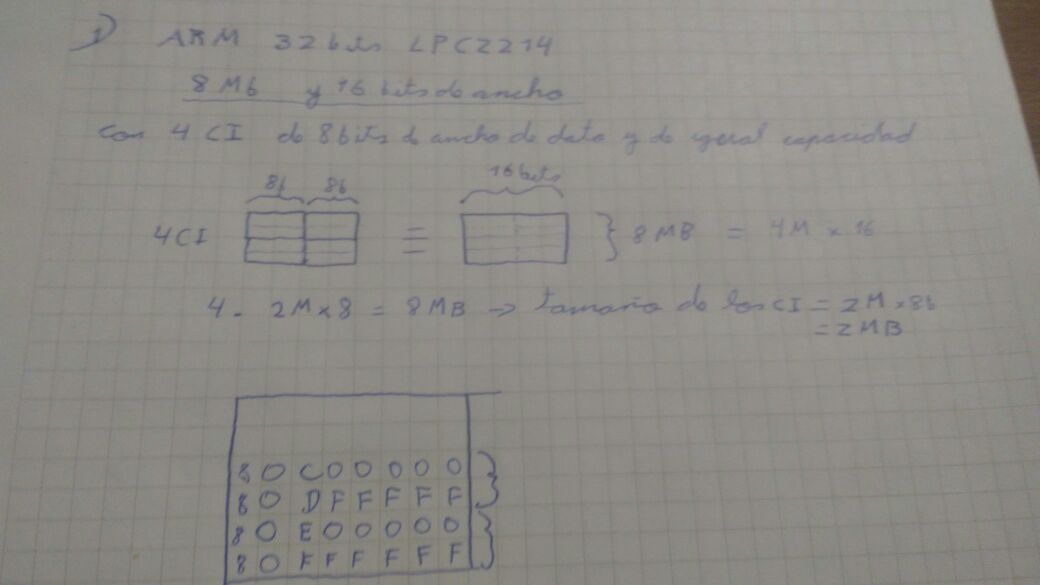 1) ARM 32bits LPC2214
8 Mb y 16 bits de ancho
con 4 CI de 8bits de ancho de dato y de igual capacidad
8b 8b 16 bits
4CI = 8 MB = 4M x 16
4 - 2M x 8 = 8MB -> tamaño de los CI = 2M x 8b
= 2 MB
8 0 C 0 0 0 0 0
8 0 D F F F F F
8 0 E 0 0 0 0 0
8 0 F F F F F F